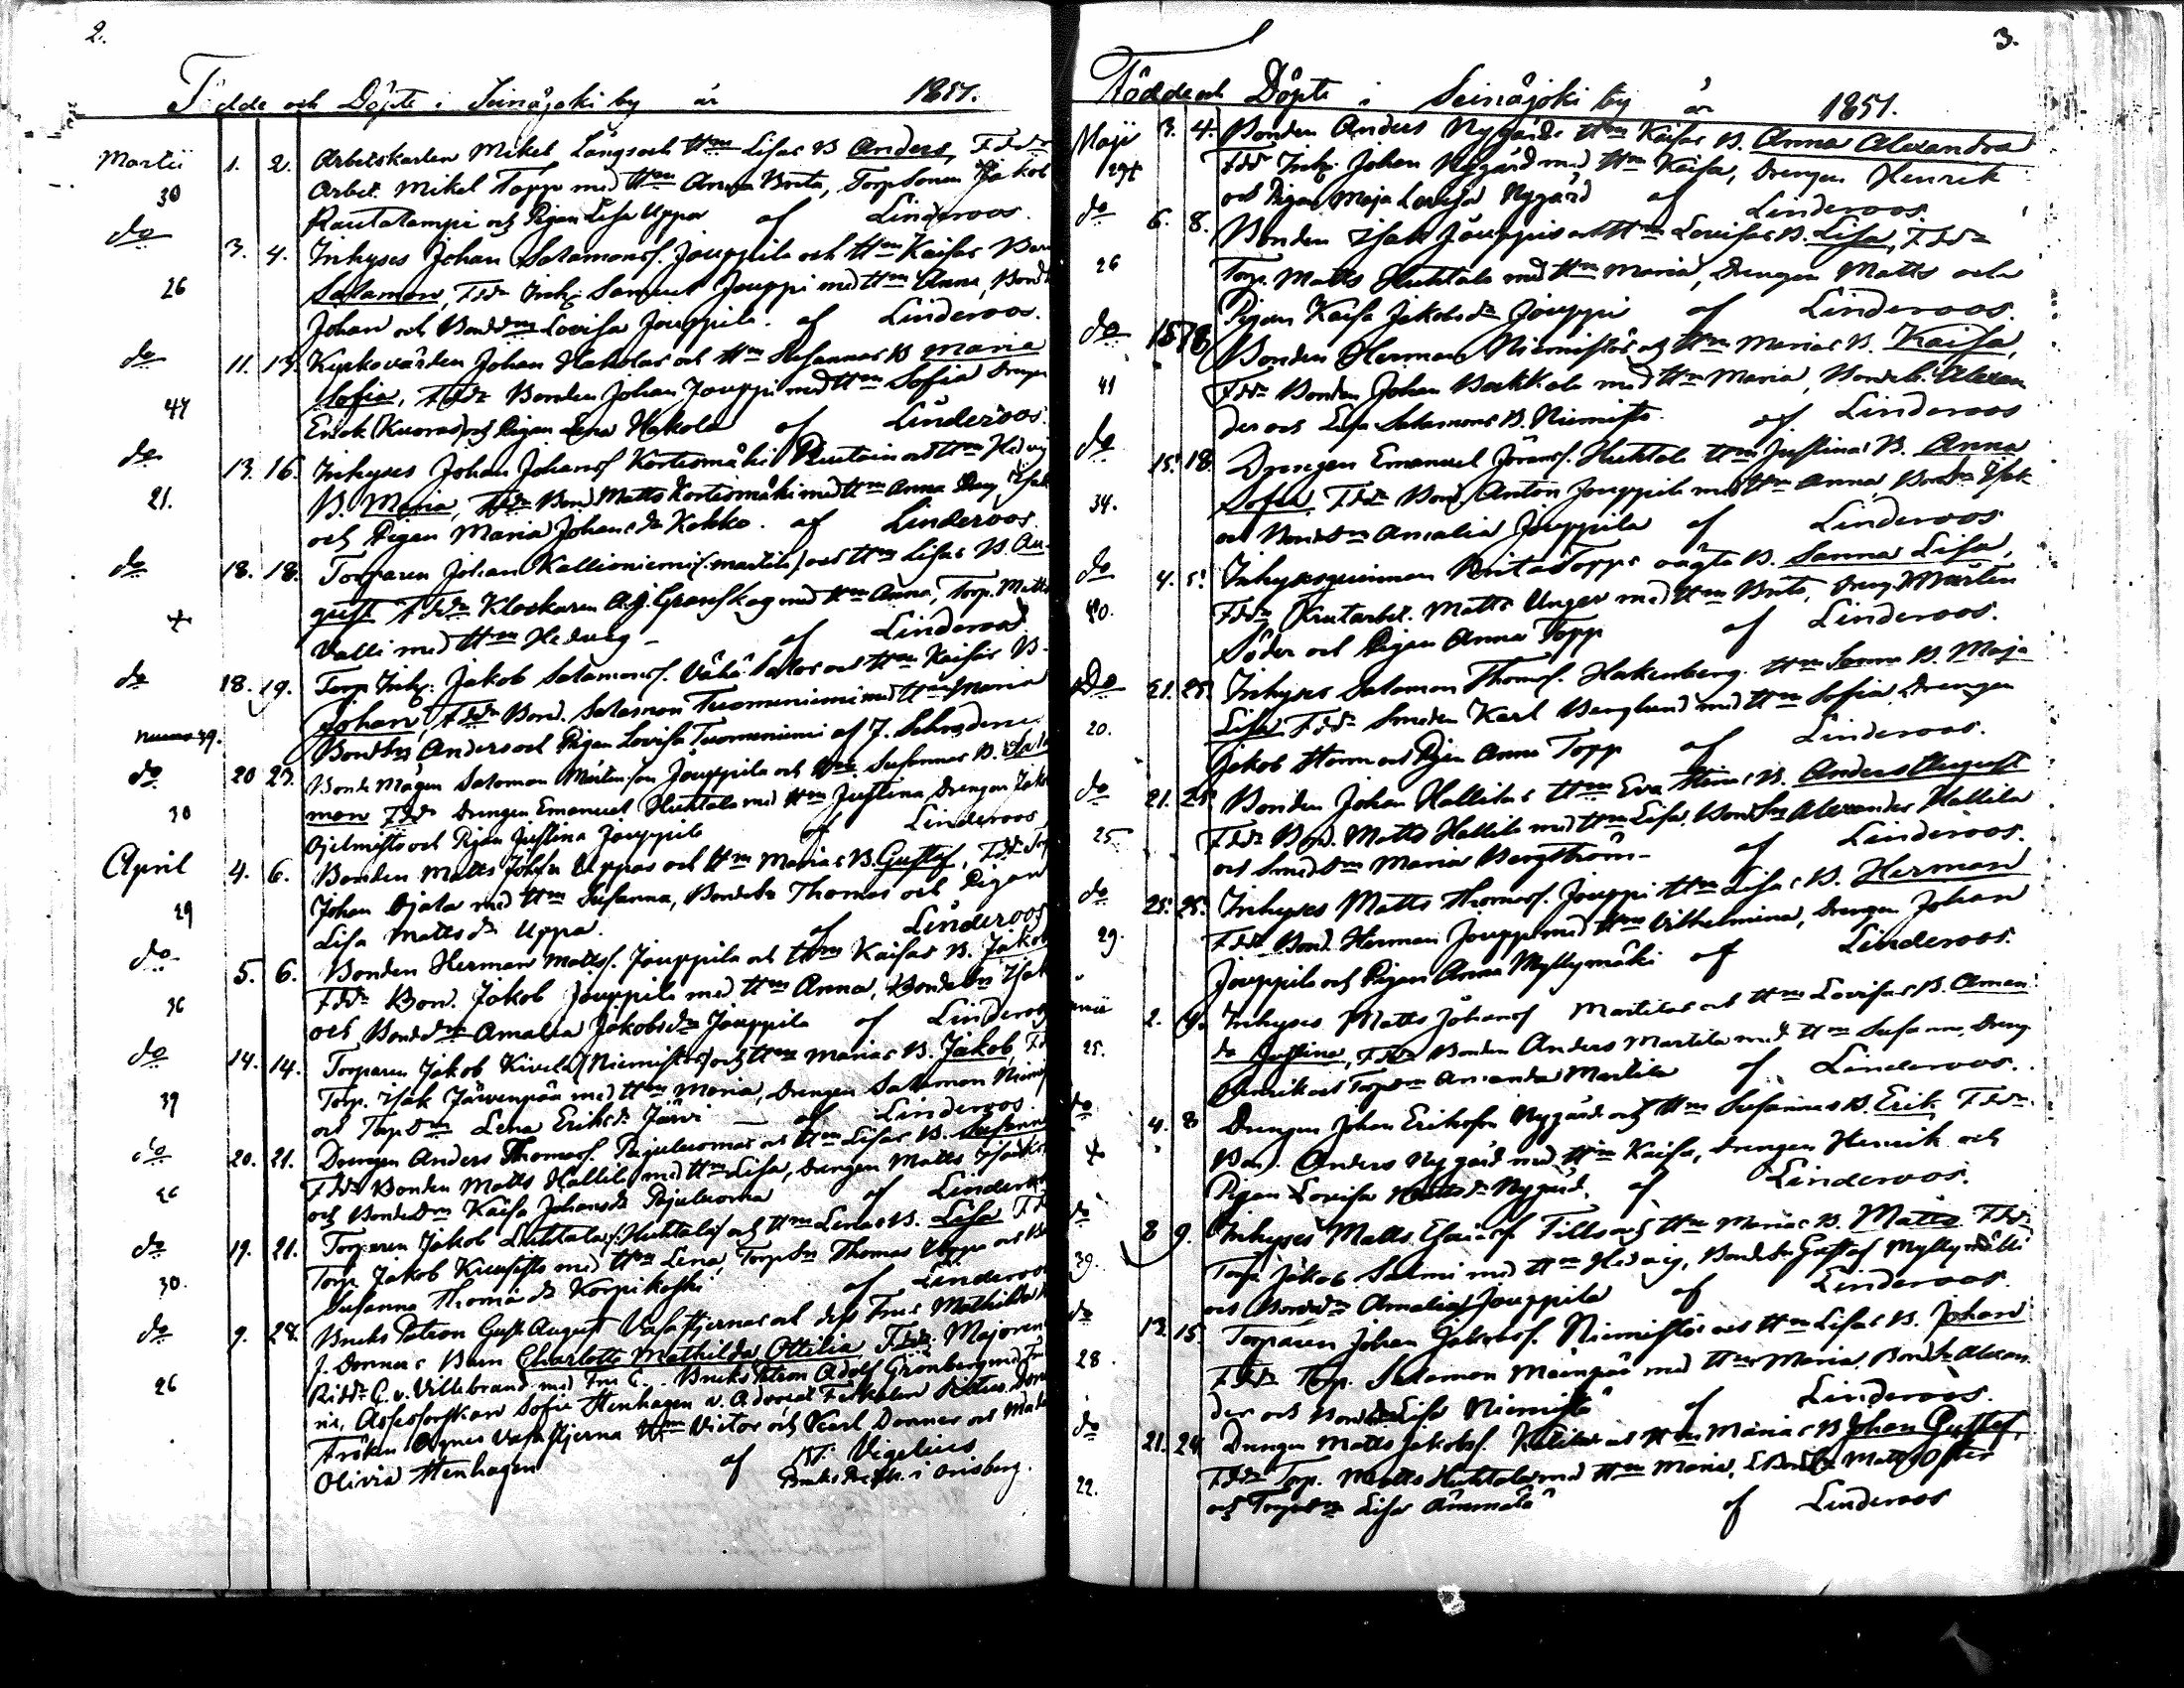 2.
Födde och Döpte i Seinäjoki by år 1851.
Martii 1. 2. Arbetskarlen Mikel Långs och Hm Lisas B Anders, Fddr
30 Arbet. Mikel Topp med Hm Anna Brita, Torpsonen Jakob
Rautalampi och Pigan Lisa Uppa af Linderoos.
do 3. 4. Inhyses Johan Salamonsf. Jouppila och Hm Kaisas Barn
26 Salamon, Fddr Inh: Samuel Jouppi med Hm Anna, Bond
Johan och Bonddm Lovisa Jouppila. af Linderoos.
do 11. 13. Kyrkovärden Johan Hakolas och Hm Susannas B Maria
44 Sofia, Fddr Bonden Johan Jouppi med Hm Sofia Dreng
Erick (Kuoras) och Pigan Lena Hakola af Linderoos.
do 13. 16. Inhyses Johan Johansf Kortesmäki och Hm Hedvig
21. B. Maria, Fddr Bond Matts Kortesmäki med Hm Anna Dreng Isak
och Pigan Maria Johansdr Kokko. af Linderoos.
do 18. 18. Torparen Johan Kallioniemis (Martila) och Hm Lisas B. Au-
+ gust Fddr Klockaren A.G. Granskog med Hm Anna, Torp. Matts
Valli med Hm Hedvig - af Linderoos
do 18. 19. Torp Inh: Jakob Salamonsf. Vähä Salos och Hm Kaisas B.
39. Johan, Fddr Bond. Salamon Tuomeniemi med Hm Maria
Bondsn Anders och Pigan Lovisa Tuomeniemi af J.
do 20 23. Bonde Mågen Salomon Mårtensson Jouppila och Hm Susannas B. Salo
30 mon Fddr Drengen Emanuel Huhtala med Hm Justina Drengen Jakob
och Pigan Justina Jouppila af Linderoos
April 4. 6. Bonden Matts Johsn Uppas och Hm Marias B. Gustaf, Fddr Torp
29 Johan Ojala med Hm Susanna, Bondesn Thomas och Pigan
Lisa Mattsdr Uppa. af Linderoos
do 5. 6. Bonden Herman Mattsf. Jouppila och Hm Kaisas B. Jakob
36 Fddr Bon. Jakob Jouppila med Hm Anna, Bondesn Isak
och Bonddm Amalia Jakobsdr Jouppila af Linderoos
do 14. 14. Torparen Jakob Kivelä (Niemistös) och Hm Marias B. Jakob, Fd
39 Torp. Isak Järvenpää med Hm Maria, Drengen Salomon Niemis
och Torpdm Lena Eriksdr Järvi - af Linderoos.
do 20. 21. Drengen Anders Thomasf. Pajuluomas och Hm Lisas B. Susanna
26 Fddr Bonden Matts Hallila med Hm Lisa, Drengen Matts Isaks
och Bondedm Kaisa Johansdr Pajuluoma af Linderoos
do 19. 21. Torparen Jakob Luhtalas (Huhtala) och Hm Lenas B. Lisa Fd
30. Torp Jakob Kuusisto med Hm Lena, Torpsn Thomas Uppa och B
Susanna Thomädr Korpikoski af Linderoos
do 9. 28. Bruks Patron Gust August Wasastjernas och dess Frus Mathilda
f. Donners Barn Charlotte Mathilda Ottilia Fddr: Majoren
26 Ridd. C. v. Villebrand med Fru C. Bruks Patron Adolf Grönberg med Fru
Assessorskan Sofie Stenhagen
Fröken Agnes Wasastjerna Hm Victor och Karl Donner och
Olivia Stenhagen af N. Vigelius
Bruks Pred. i Orisberg.
3.
Födde och Döpte i Seinäjoki by år 1851.
Maji 3. 4. Bonden Anders Nygårds Hm Kaisas B. Anna Alexandra
Fddr Inh: Johan Nygård med Hm Kaisa, Drengen Henrik
och Pigan Maja Lovisa Nygård af Linderoos.
do 6. 8. Bonden Isak Jouppis och Hm Lovisas B. Lisa, Fddr
26 Torp. Matts Huhtala med Hm Maria, Drengen Matts och
Pigan Kaisa Jakobsdr Jouppi af Linderoos.
do 15 18 Bonden Herman Niemistös och Hm Marias B. Kaisa,
41 Fddr Bonden Johan Bakkala med Hm Maria, Bondes: Alexan
der och Lisa Salamons D. Niemistö. af Linderoos
do 15. 18. Drengen Emanuel Huhtala Hm Justinas B. Anna
34. Sofia, Fddr Bond Anton Jouppila med Hm Anna, Bondsn Isak
och Bonddm Amalia Jouppila af Linderoos
do 4. 5. Inhysesqvinnan Brita Topps oägta B. Sanna Lisa,
40. Fddr Krutarbet. Matts Unger med Hm Brita, Dreng Mårten
Söder och Pigan Anna Topp af Linderoos.
Do 21. 25. Inhyses Salamon Thomsf. Hakenberg Hm Sanna B. Maja
20. Lisa Fddr Smeden Karl Berglund med Hm Sofia, Drengen
Jakob och Pigan Anna Topp af Linderoos.
do 21. 25. Bonden Johan Hallilas Hm Eva Stinas B. Anders August
25 Fddr Bon. Matts Hallila med Hm Lisa, Bondsn Alexander Hallila
och Smeddm Maria Bergström - af Linderoos.
do 25. 25. Inhyses Matts Thomasf. Jouppi Hm Lisas B. Herman
29. Fddr Bond. Herman Jouppi med Hm Vilhelmina, Drengen Johan
Jouppila och Pigan Anna Myllymäki af Linderoos.
2. 9. Inhyses Matts Johansf Martilas och Hm Lovisas B. Aman-
25. da Justina, Fddr Bonden Anders Martila med Hm Susanna, Dreng
Henrik och Torpdm Amanda Martila af Linderoos.
do 4. 8 Drengen Johan Eriksson Nygårds och Hm Susannas B. Erik, Fddr
+ Bon. Anders Nygård med Hm Kaisa, Drengen Henrik och
Pigan Lovisa Mattsdr Nygård. af Linderoos.
do 8 9. Inhyses Matts Tills och Hm Marias B. Matts Fddr
39. Torp. Jakob Salmi med Hm Hedvig, Bondesn Gustaf Myllymäki
och Bonddr Amalia Jouppila af Linderoos
do 13. 15. Torparen Johan Jakobsf. Niemistös och Hm Lisas B. Johan
28. Fddr Torp. Salomon Mäenpää med Hm Maria, Bondsn Alexan
der och Lisa Niemistö af Linderoos.
do 21. 24. Drengen Matts Jakobsf. och Hm Marias B Johan Gustaf,
22. Fddr Torp. Matts Huhtala med Hm Maria, Matts
och Torpdm Lisa Ämmälä af Linderoos